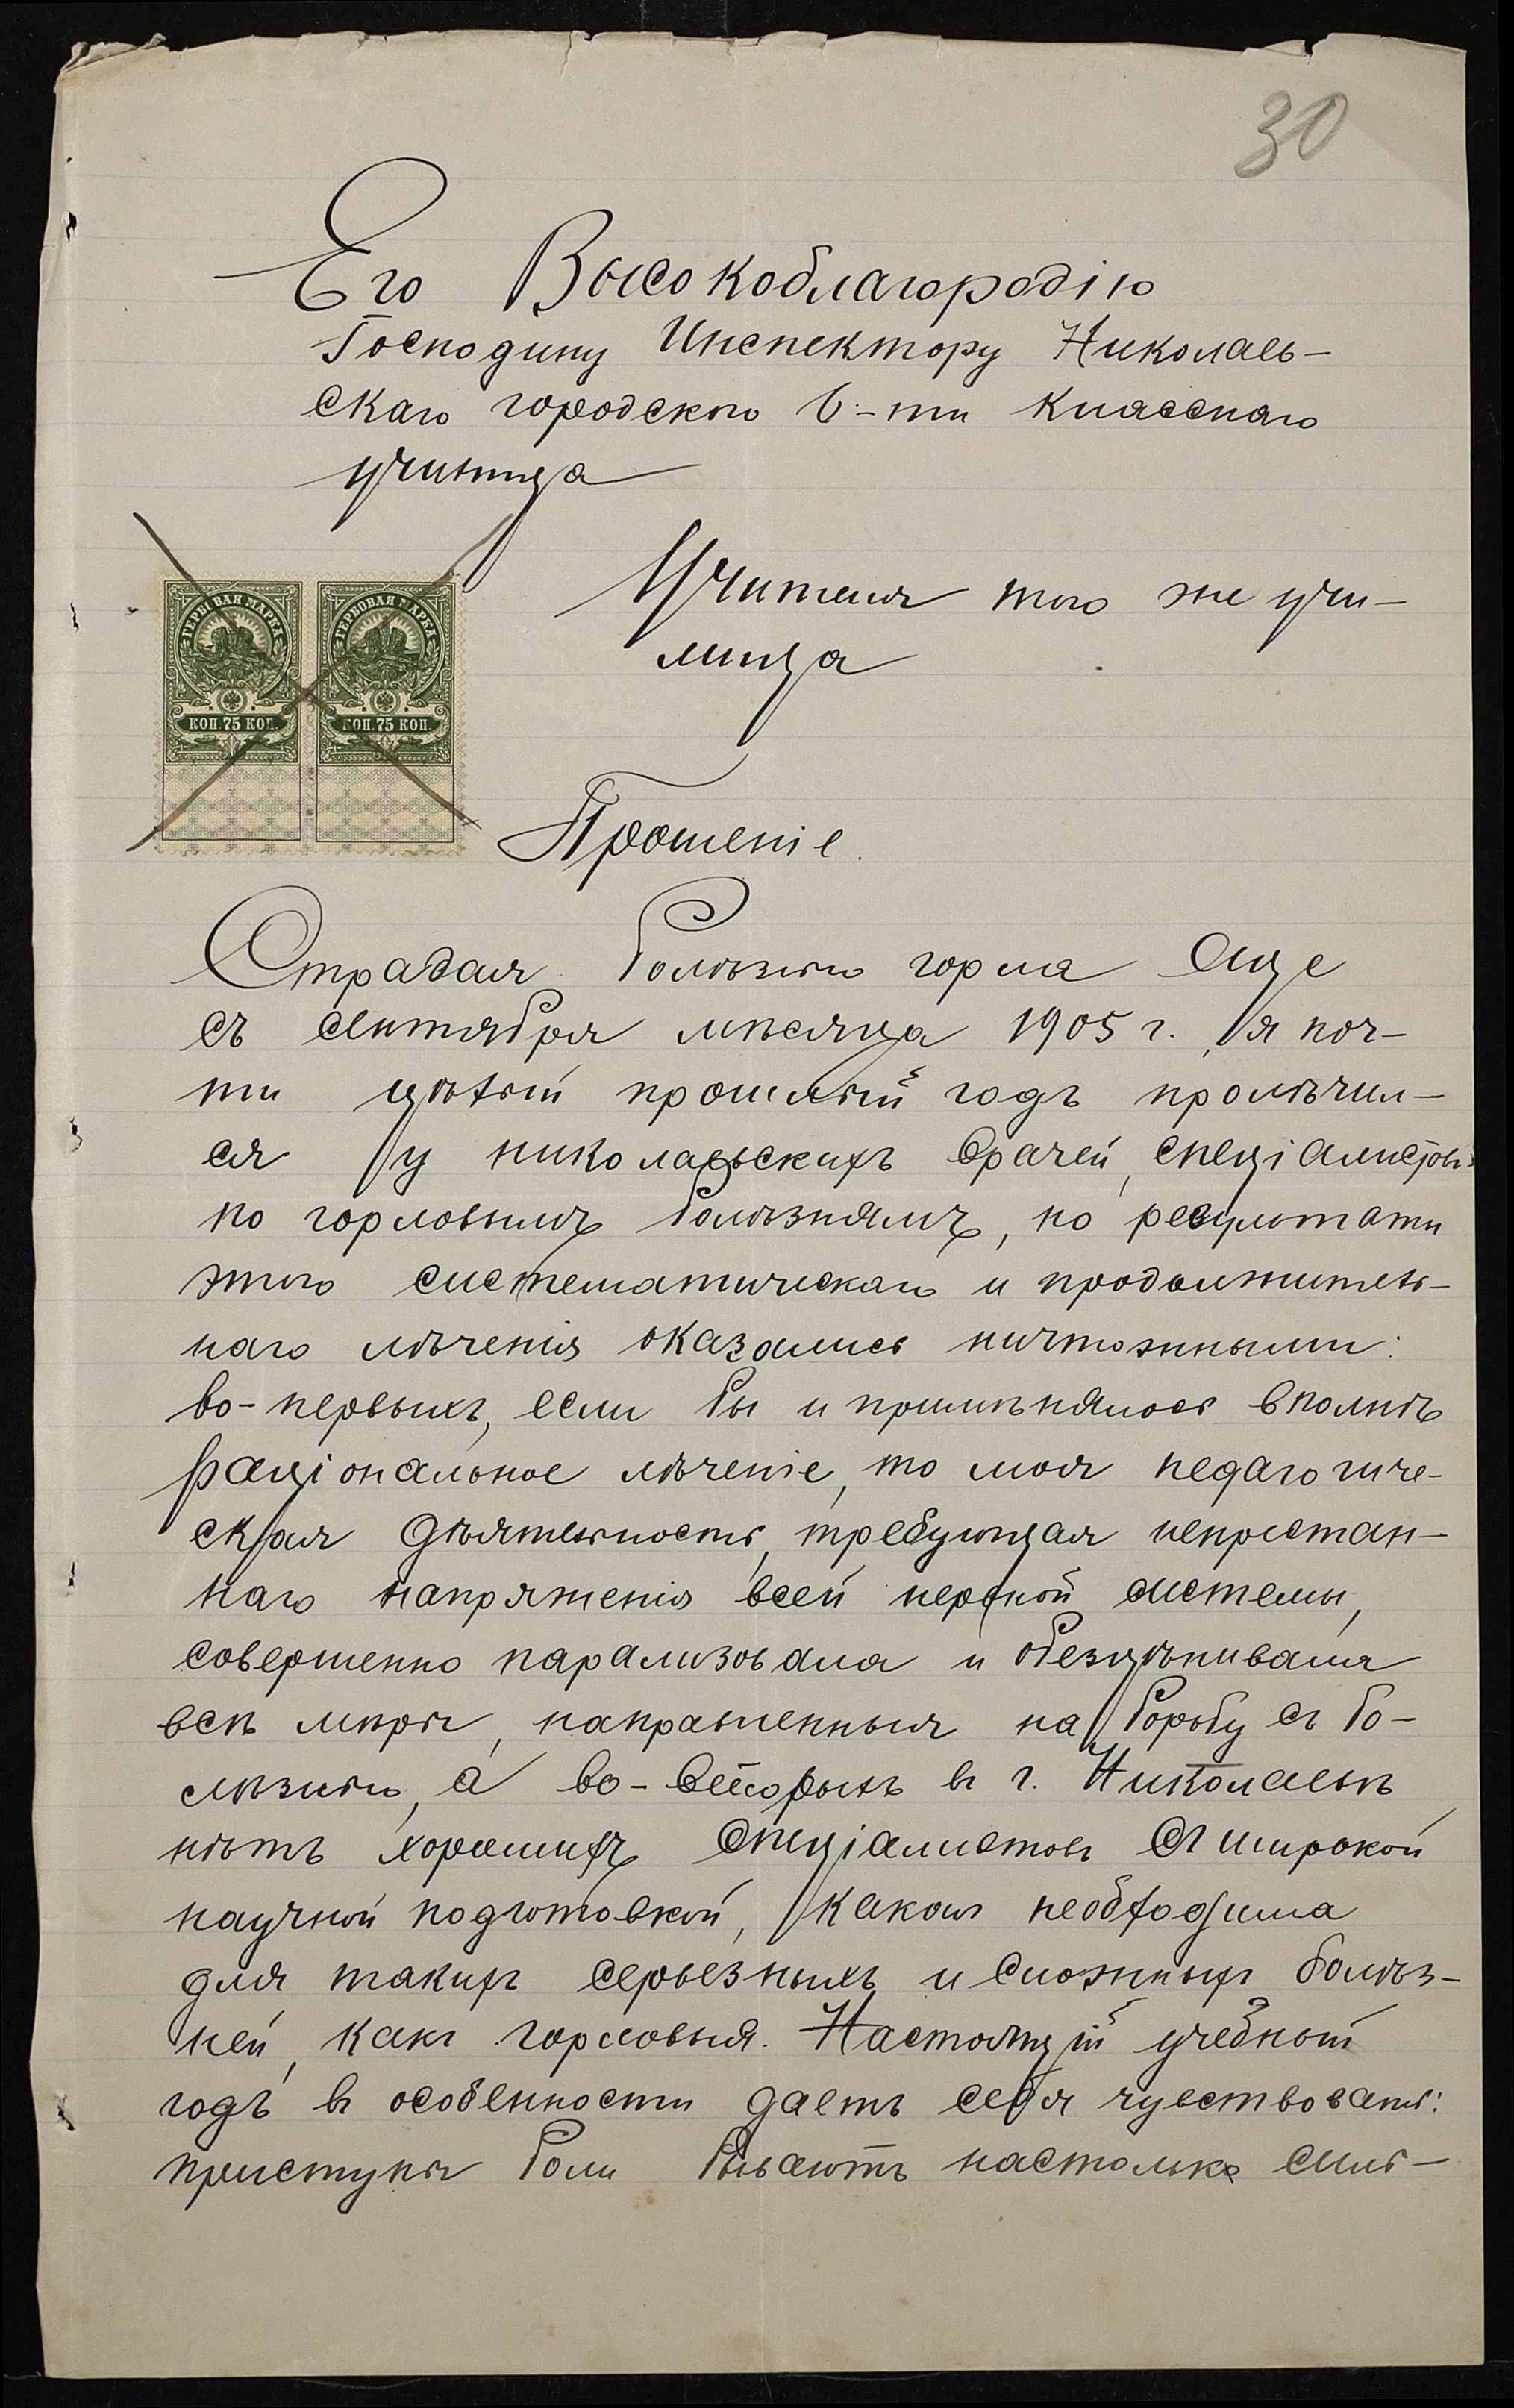 30
Его Высокоблагородію
Господину Инспектору Николаев-
скаго городского 6-ти класснаго
училища
Учителя того же учи-
лища
ГЕРБОВАЯ МАРКА ГЕРБОВАЯ МАРКА
КОП. 75 КОП. КОП. 75 КОП.
Прошеніе.
Страдая болѣзнью горла еще
съ сентября мѣсяца 1905 г., я поч-
ти цѣлый прошлый годъ пролѣчил-
ся у николаевскихъ врачей, спеціалистовъ
по горловымъ болѣзнямъ, но результаты
этого систематическаго и продолжитель-
наго лѣченія оказались ничтожными:
во-первыхъ, если бы и примѣнялось вполнѣ
раціональное лѣченіе, то моя педагогиче-
ская дѣятельность, требующая непрестан-
наго напряженія всей нервной системы,
совершенно парализовала и обезцѣнивала
всѣ мѣры, направленныя на борьбу съ бо-
лѣзнью, а во-вторыхъ въ г. Николаевѣ
нѣтъ хорошихъ спеціалистовъ съ широкой
научной подготовкой, какая необходима
для такихъ серьезныхъ и сложныхъ болѣз-
ней, какъ горловыя. Настоящій учебный
годъ въ особенности даетъ себя чувствовать:
приступы боли бываютъ настолько силь-